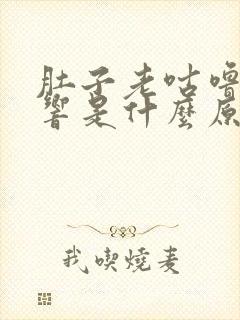 肚子老咕嚕
響是什麼原
我喫燒麦